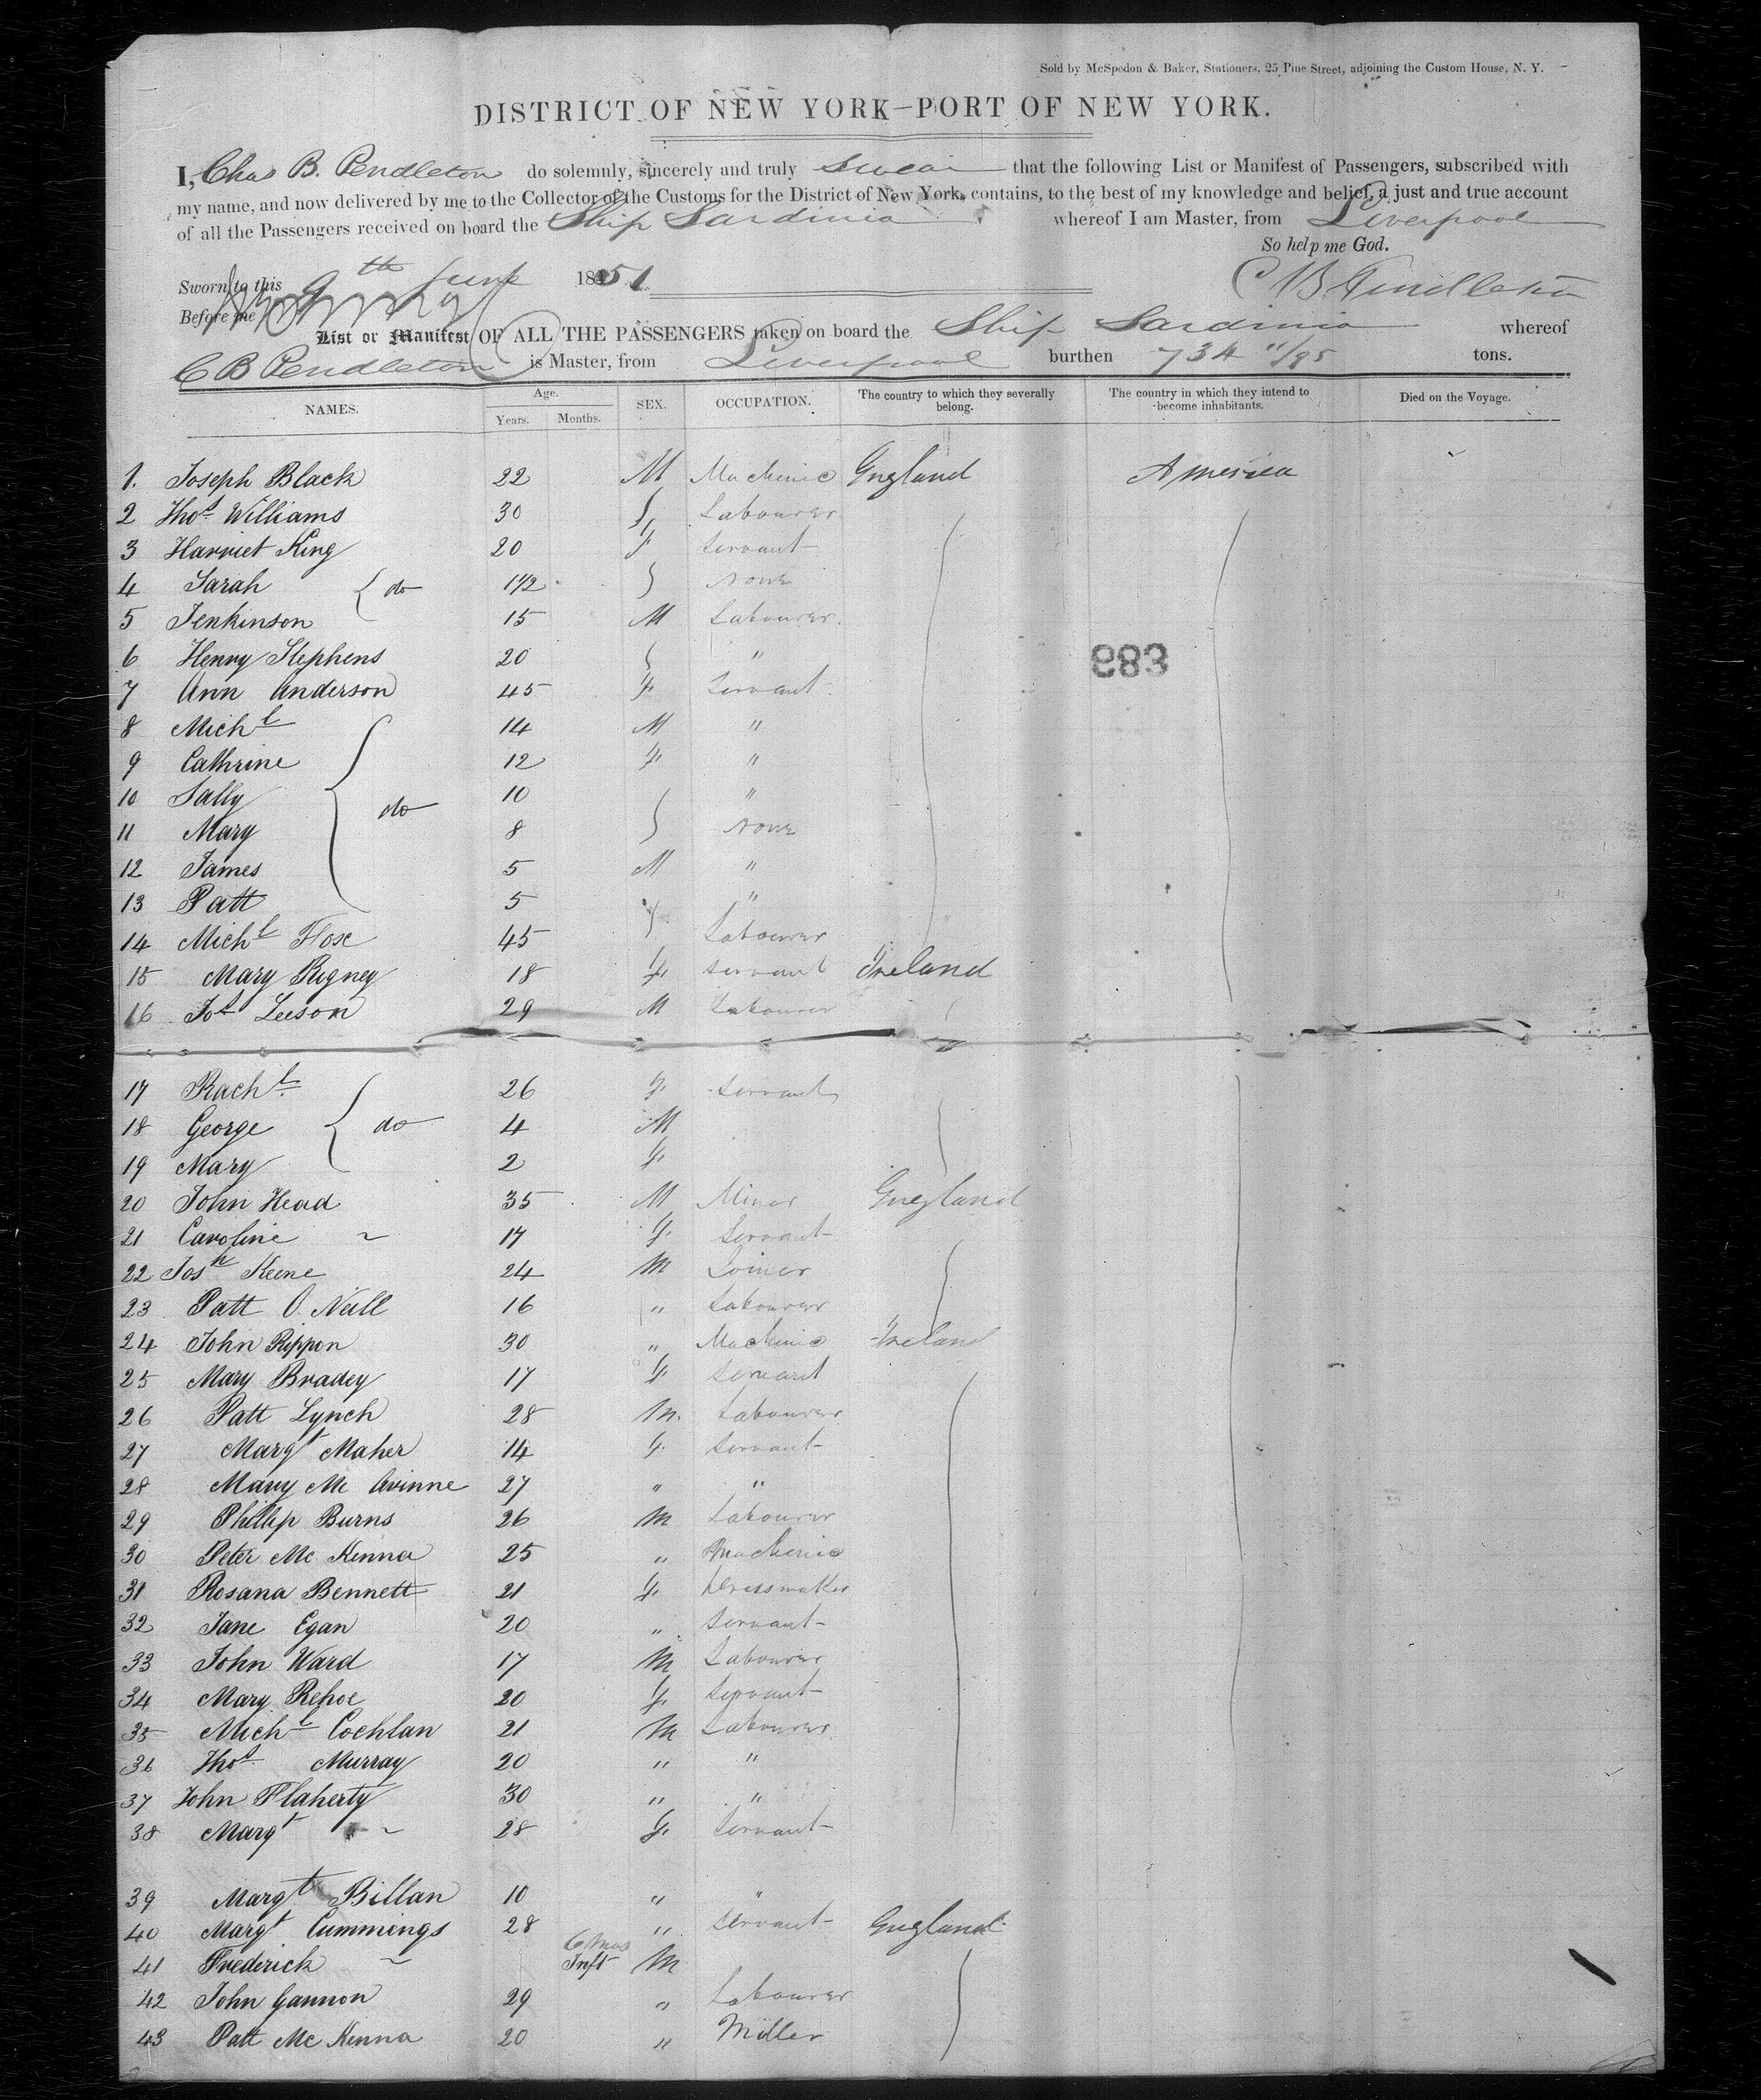 Sold by McSpedon & Baker, Stationers, 25 Pine Street, adjoining the Custom House, N. Y.
DISTRICT OF NEW YORK—PORT OF NEW YORK.
I, Chas B. Pendleton do solemnly, sincerely and truly swear that the following List or Manifest of Passengers, subscribed with
my name, and now delivered by me to the Collector of the Customs for the District of New York, contains, to the best of my knowledge and belief, a just and true account
of all the Passengers received on board the Ship Sardinia whereof I am Master, from Liverpool
So help me God.
Sworn to this 9th June 1851 C B Pendleton
Before me
List or Manifest OF ALL THE PASSENGERS taken on board the Ship Sardinia whereof
C B Pendleton is Master, from Liverpool burthen 734 11/95 tons.
NAMES. Age. Years. Months. SEX. OCCUPATION. The country to which they severally belong. The country in which they intend to become inhabitants. Died on the Voyage.
1. Joseph Black 22 M Machinic England America
2 Thos Williams 30 Labourer
3 Harriet King 20 F Servant
4 Sarah do 1 1/2 None
5 Jenkinson 15 M Labourer
6 Henry Stephens 20 "
883
7 Ann Anderson 45 F Servant
8 Michl 14 M "
9 Cathrine 12 F "
10 Sally do 10 "
11 Mary 8 None
12 James 5 M "
13 Patt 5 "
14 Michl 45 Labourer
15 Mary Rigney 18 F Servant Ireland
16 Jos Leeson 29 M Labourer
17 Rachl 26 F Servant
18 George do 4 M
19 Mary 2 F
20 John Head 35 M Miner England
21 Caroline ~ 17 F Servant
22 Josh Keene 24 M Joiner
23 Patt O. Neill 16 " Labourer
24 John Rippon 30 " Machinic Ireland
25 Mary Bradey 17 F Servant
26 Patt Lynch 28 M. Labourer
27 Margt Maher 14 F Servant
28 Mary Mc Avinne 27 " "
29 Phillip Burns 26 M Labourer
30 Peter Mc Kenna 25 " Machinic
31 Rosana Bennett 21 F Dressmaker
32 Jane Egan 20 " Servant
33 John Ward 17 M Labourer
34 Mary Rehoe 20 F Servant
35 Michl Cochlan 21 M Labourer
36 Thos Murray 20 " "
37 John Flaherty 30 " "
38 Margt ~ 28 F Servant
39 Margt Billan 10 " "
40 Margt Cummings 28 " Servant England
41 Frederick ~ 6 mos Inft M
42 John Gannon 29 " Labourer
43 Patt Mc Kenna 20 " Miller